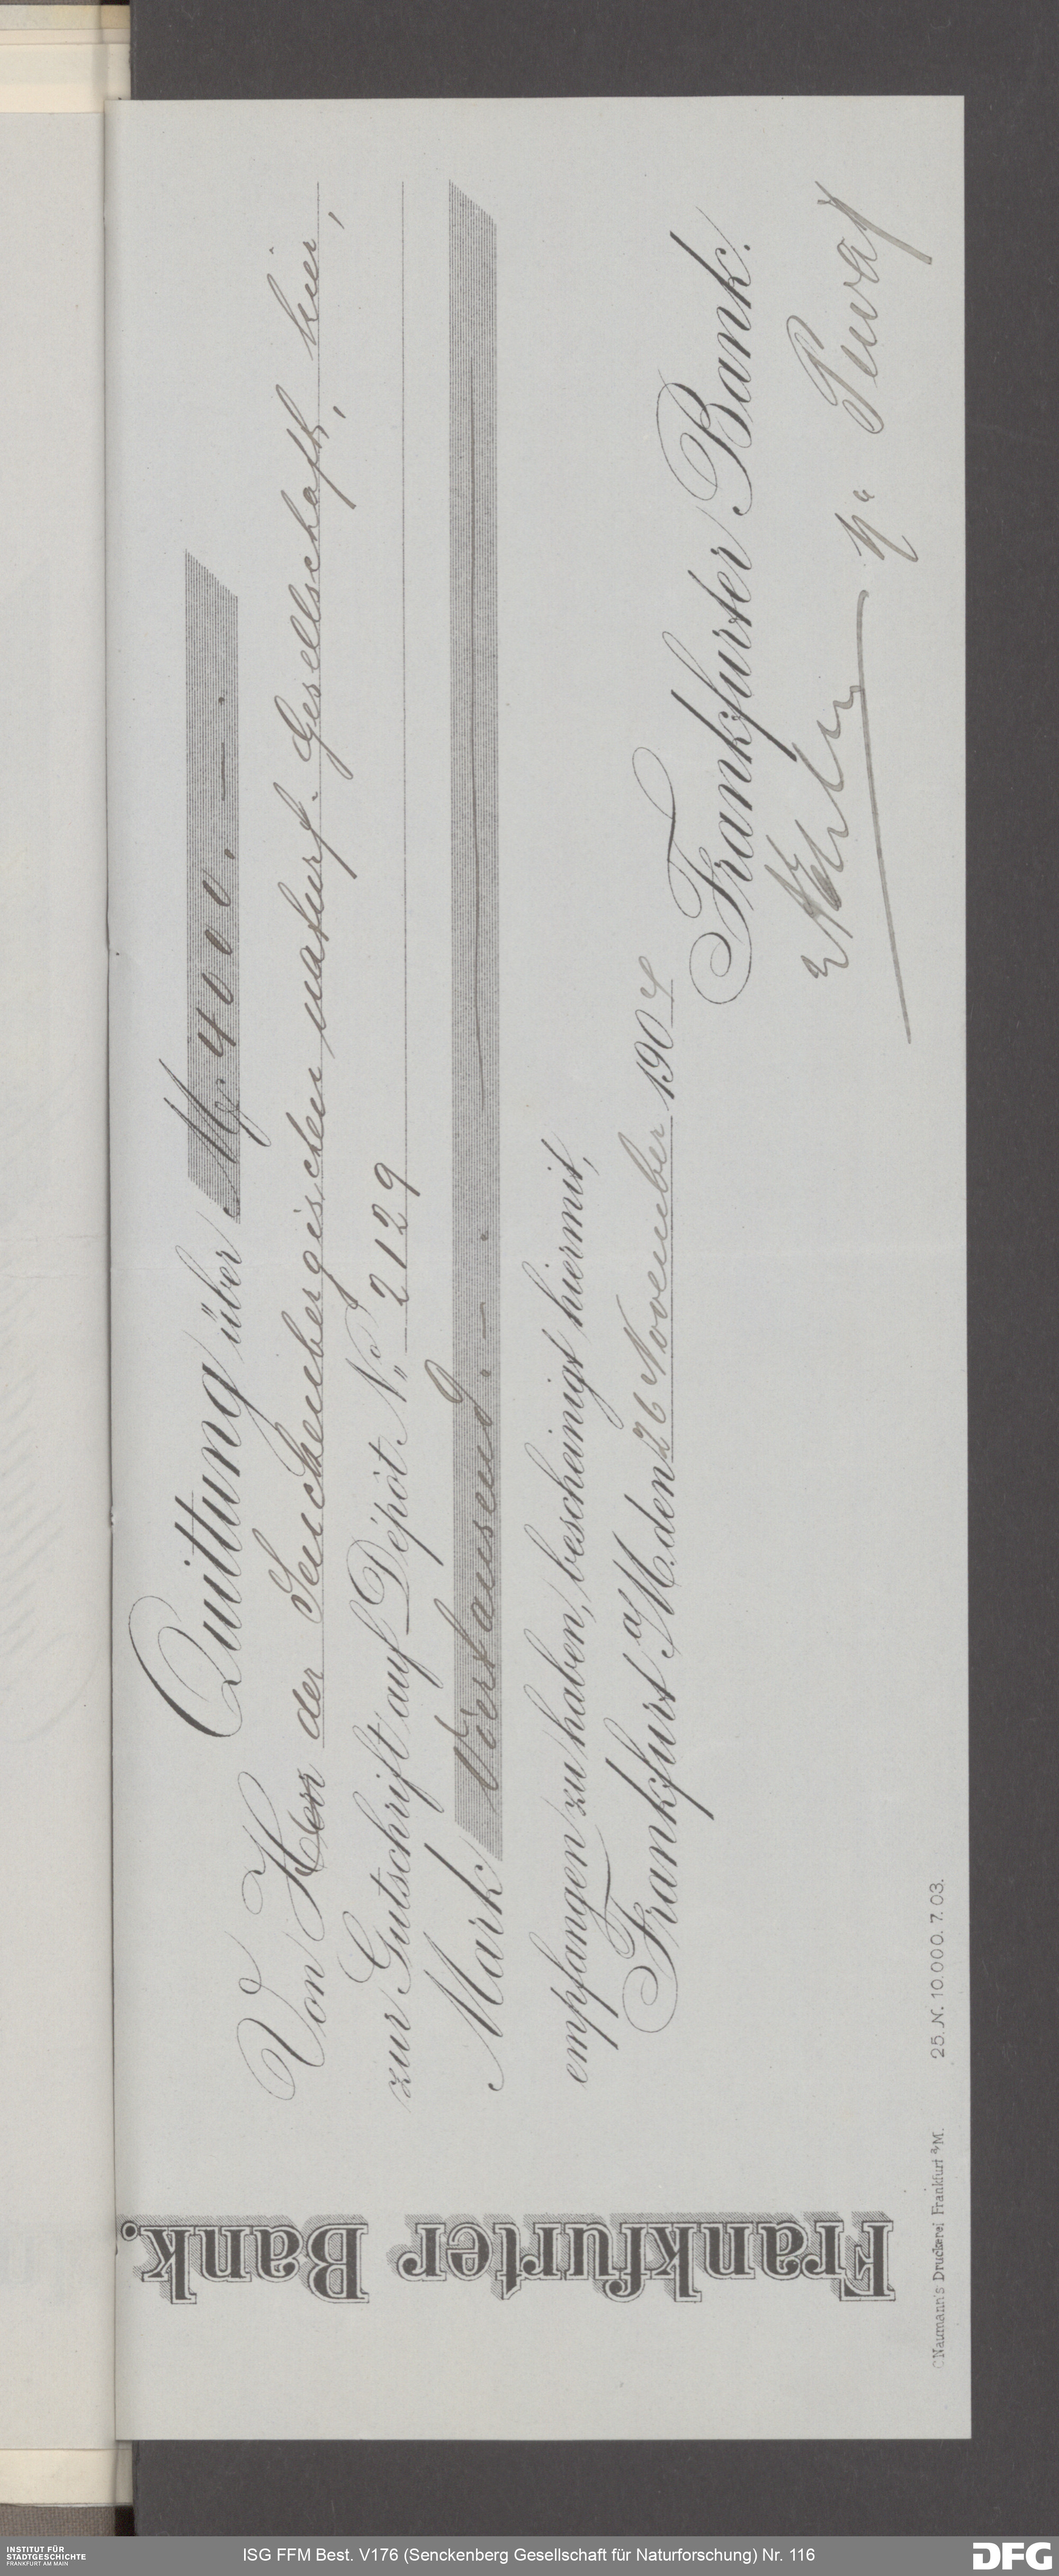 Frankfurter Bank.
Quittung über M 4000.—.
Von Herr der Senckenbergischen naturf. Gesellschaft, hier,
zur Gutschrift auf Dépôt No. 2129
Mark Viertausend.—.
empfangen zu haben, bescheinigt hiermit,
Frankfurt a/M. den 26 November 1904
Frankfurter Bank.
C Naumann's Druckerei Frankfurt a/M. 25. N. 10.000. 7. 03.
INSTITUT FÜR
STADTGESCHICHTE
FRANKFURT AM MAIN
ISG FFM Best. V176 (Senckenberg Gesellschaft für Naturforschung) Nr. 116
DFG